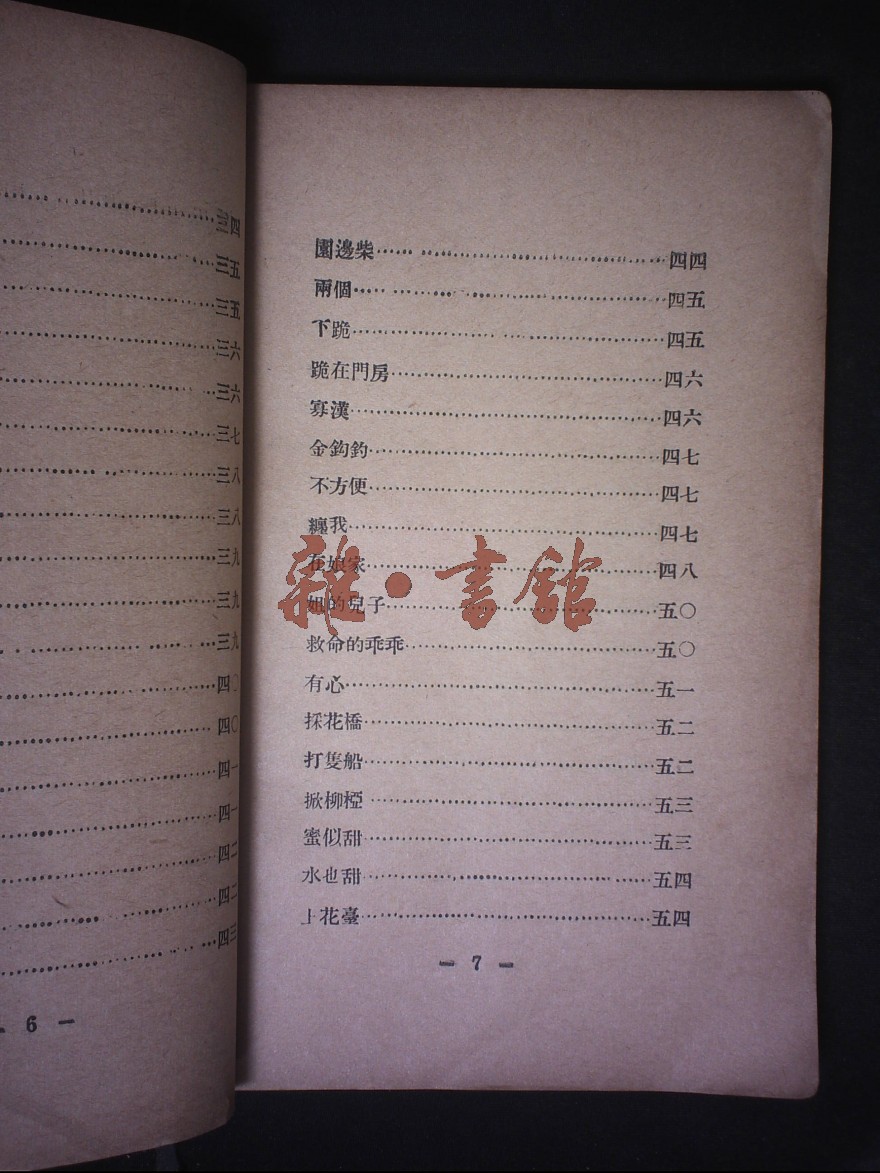 四
三五
三五
三六
三六
三七
三八
三八
三九
三九
三九
四〇
四〇
四一
四一
四二
四二
四三
6 —
園邊柴……四四
兩個……四五
下跪……四五
跪在門房……四六
寡漢……四六
金鈎釣……四七
不方便……四七
纏我……四七
在娘家……四八
姐的兒子……五〇
救命的乖乖……五〇
有心……五一
採花橋……五二
打隻船……五二
掀柳椏……五三
蜜似甜……五三
水也甜……五四
上花臺……五四
— 7 —
雜·書館